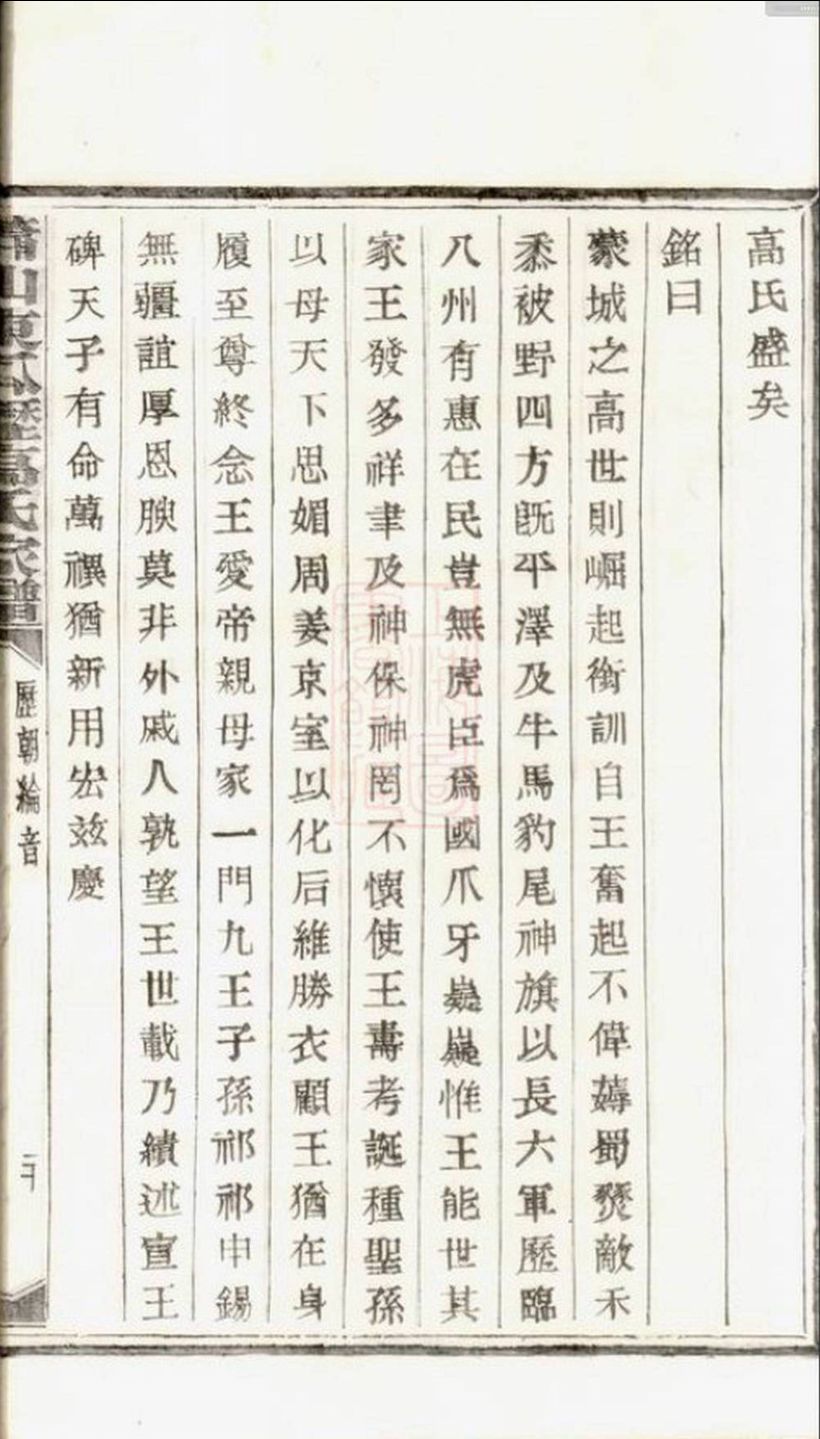 高氏盛矣
銘曰
蒙城之高世則崛起銜訓自王奮起不偉薅蜀燹敵禾
黍被野四方旣平澤及牛馬豹尾神旗以長六軍歷臨
八州有惠在民豈無虎臣爲國爪牙巍巍惟王能世其
家王發多祥聿及神保神罔不懷使王壽考誕種聖孫
以母天下思媚周姜京室以化后維勝衣顧王猶在身
履至尊終念王愛帝親母家一門九王子孫祁祁申錫
無疆誼厚恩腴莫非外戚人孰望王世載乃績述宣王
碑天子有命萬禩猶新用宏茲慶
歷朝綸音